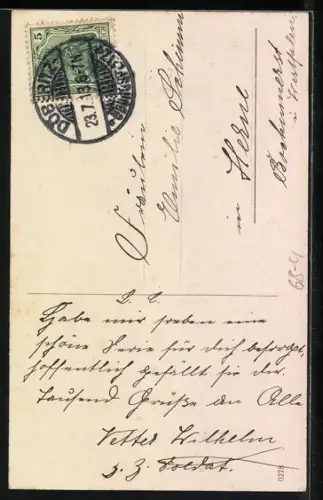 5
DÖBERITZ
23.7.13.6-7N
Fräulein
Emilie
in Herne
Bochumerst
i. Westfalen
68-4
L. E.
Habe mir soeben eine
schöne Serie für dich besorgt,
hoffentlich gefällt sie dir
Tausend Grüße an Alle
Vetter Wilhelm
z. Z. Soldat.
0278